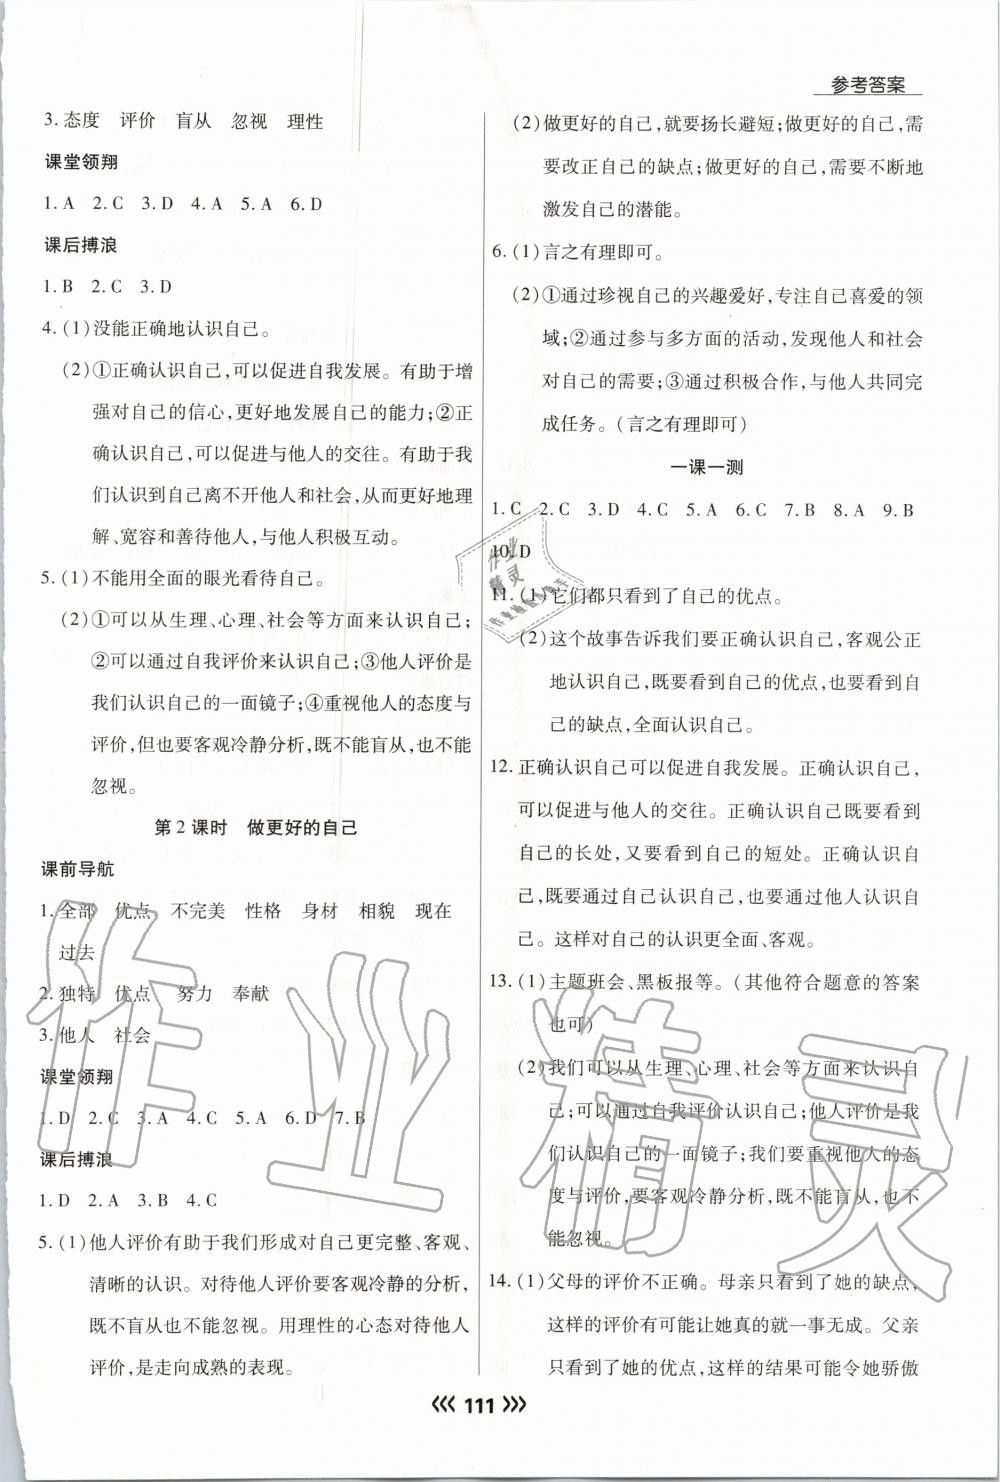 参考答案
3.态度 评价 盲从 忽视 理性
课堂领翔
1.A 2.C 3.D 4.A 5.A 6.D
课后搏浪
1.B 2.C 3.D
4.(1)没能正确地认识自己。
(2)①正确认识自己,可以促进自我发展。有助于增
强对自己的信心,更好地发展自己的能力;②正
确认识自己,可以促进与他人的交往。有助于我
们认识到自己离不开他人和社会,从而更好地理
解、宽容和善待他人,与他人积极互动。
5.(1)不能用全面的眼光看待自己。
(2)①可以从生理、心理、社会等方面来认识自己;
②可以通过自我评价来认识自己;③他人评价是
我们认识自己的一面镜子;④重视他人的态度与
评价,但也要客观冷静分析,既不能盲从,也不能
忽视。
第2课时 做更好的自己
课前导航
1.全部 优点 不完美 性格 身材 相貌 现在
过去
2.独特 优点 努力 奉献
3.他人 社会
课堂领翔
1.D 2.C 3.A 4.C 5.A 6.D 7.B
课后搏浪
1.D 2.A 3.B 4.C
5.(1)他人评价有助于我们形成对自己更完整、客观、
清晰的认识。对待他人评价要客观冷静的分析,
既不盲从也不能忽视。用理性的心态对待他人
评价,是走向成熟的表现。
(2)做更好的自己,就要扬长避短;做更好的自己,需
要改正自己的缺点;做更好的自己,需要不断地
激发自己的潜能。
6.(1)言之有理即可。
(2)①通过珍视自己的兴趣爱好,专注自己喜爱的领
域;②通过参与多方面的活动,发现他人和社会
对自己的需要;③通过积极合作,与他人共同完
成任务。(言之有理即可)
一课一测
1.C 2.C 3.D 4.C 5.A 6.C 7.B 8.A 9.B
10.D
11.(1)它们都只看到了自己的优点。
(2)这个故事告诉我们要正确认识自己,客观公正
地认识自己,既要看到自己的优点,也要看到自
己的缺点,全面认识自己。
12.正确认识自己可以促进自我发展。正确认识自己,
可以促进与他人的交往。正确认识自己既要看到
自己的长处,又要看到自己的短处。正确认识自
己,既要通过自己认识自己,也要通过他人认识自
己。这样对自己的认识更全面、客观。
13.(1)主题班会、黑板报等。(其他符合题意的答案
也可)
(2)我们可以从生理、心理、社会等方面来认识自
己;可以通过自我评价认识自己;他人评价是我
们认识自己的一面镜子;我们要重视他人的态
度与评价,要客观冷静分析,既不能盲从,也不
能忽视。
14.(1)父母的评价不正确。母亲只看到了她的缺点,
这样的评价有可能让她真的就一事无成。父亲
只看到了她的优点,这样的结果可能令她骄傲
111
作业精灵
作业
精灵